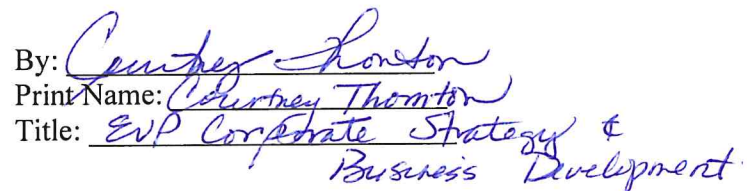 By: Courtney Thornton
Print Name: Courtney Thornton
Title: EVP Corporate Strategy &
Business Development